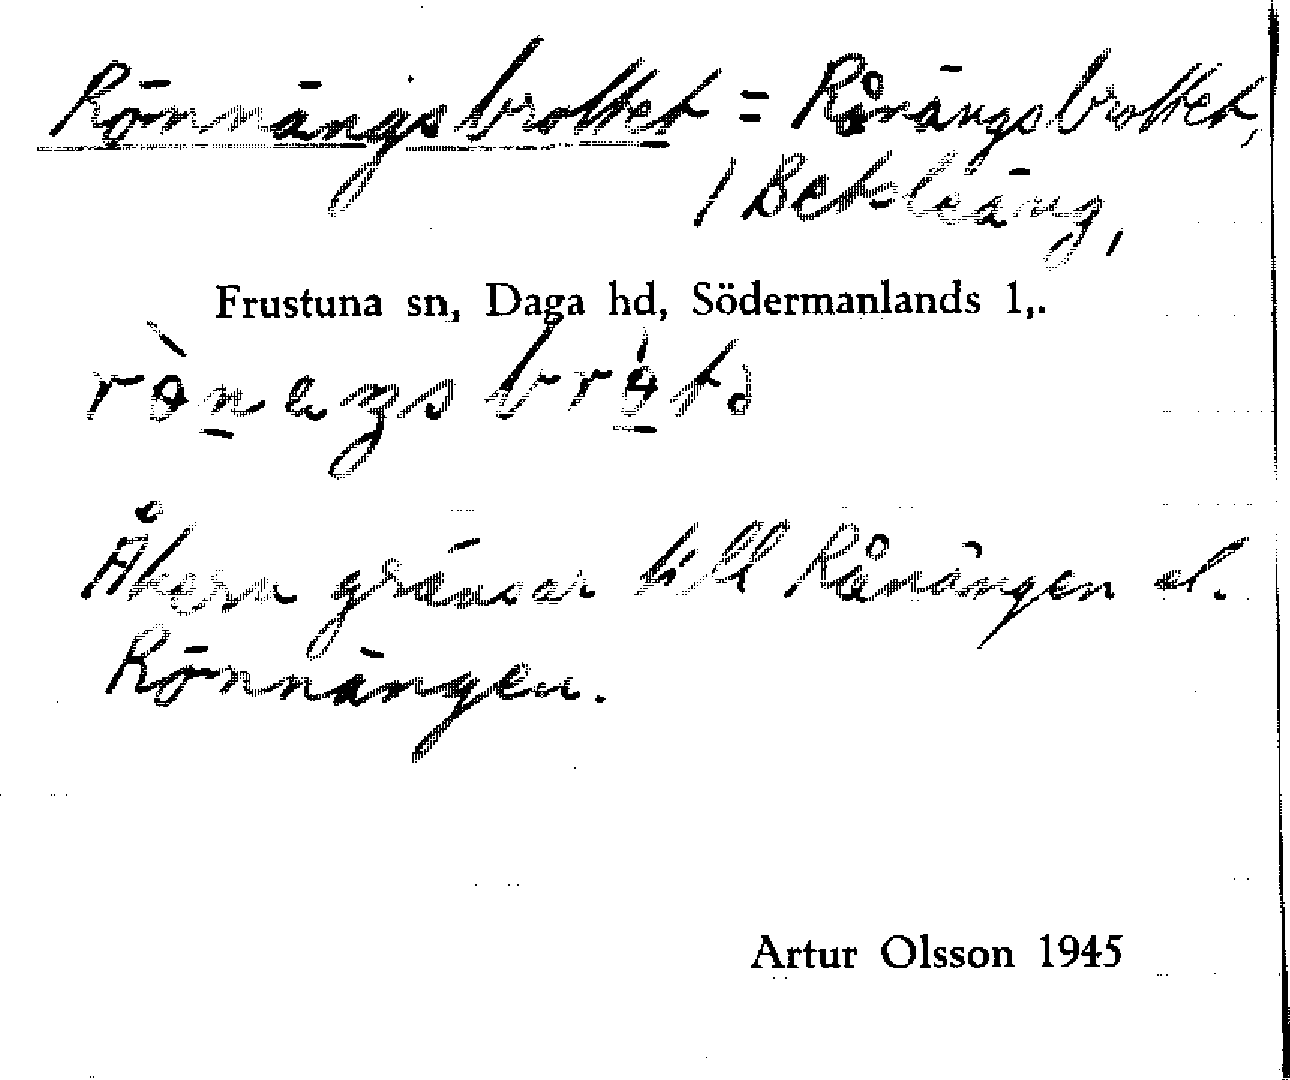 Rönnängsbrottet = Rårängsbrottet,
1 Bekleäng,
Frustuna sn, Daga hd, Södermanlands l,.
Åkern gränsar till Rårängen el.
Rönnängen.
Artur Olsson 1945